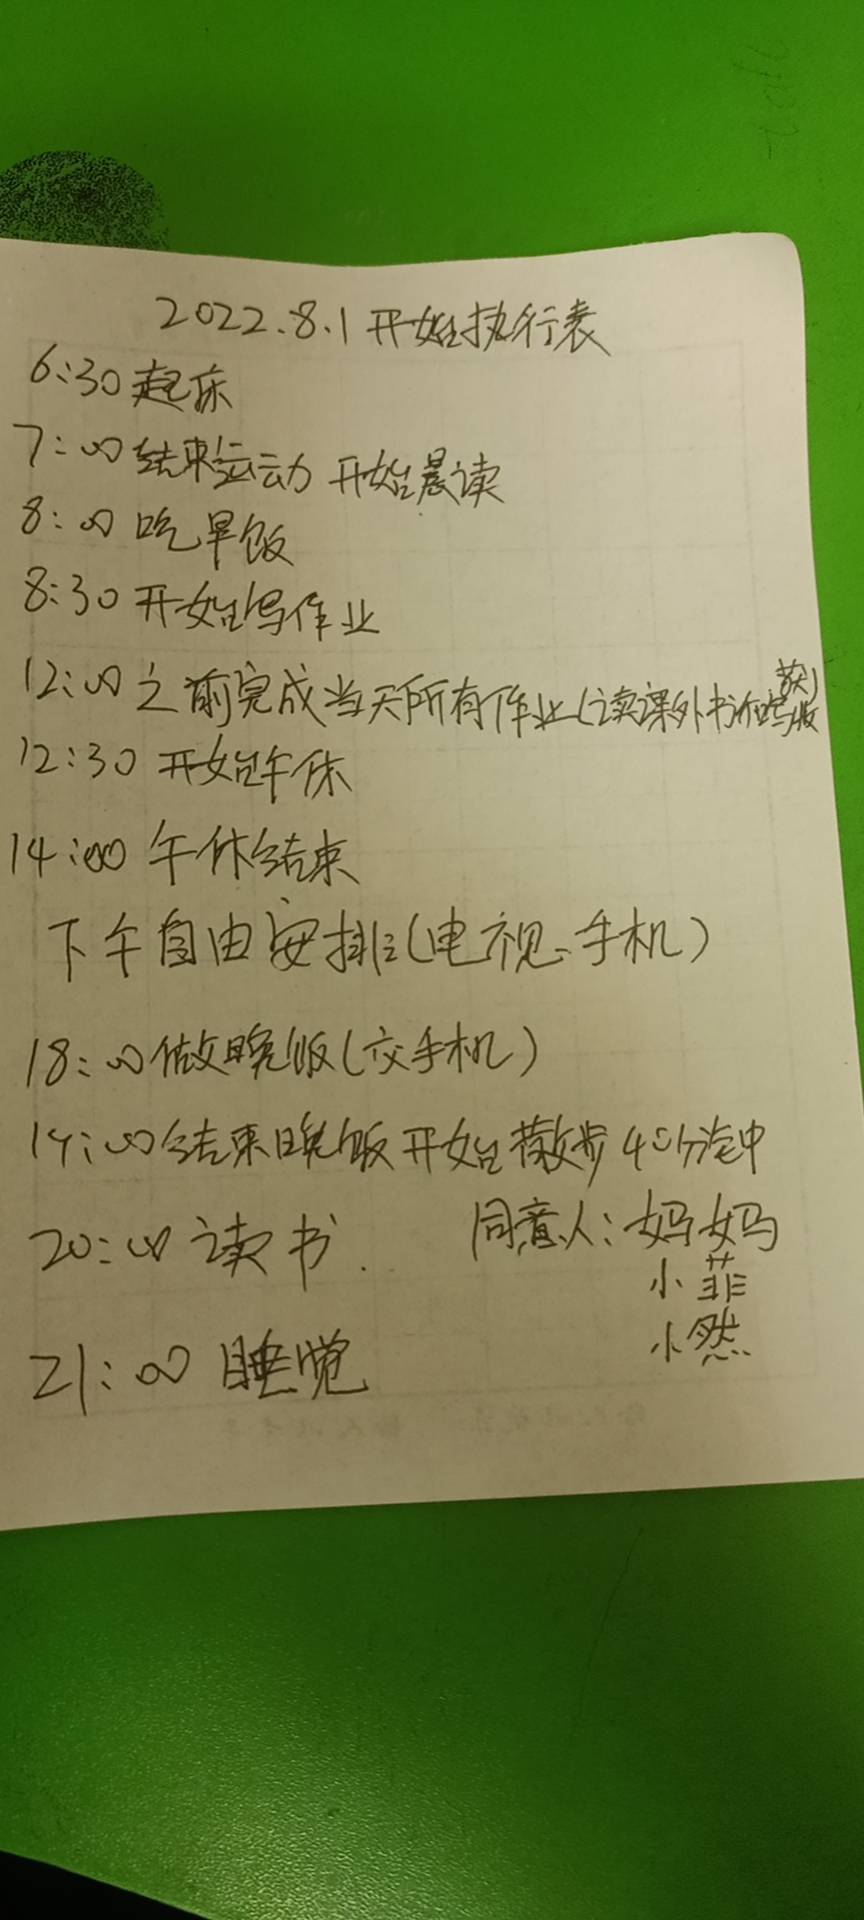 2022.8.1开始执行表
6:30起床
7:00结束运动 开始晨读
8:00 吃早饭
8:30 开始写作业
12:00之前完成当天所有作业(读课外书
12:30 开始午休
14:00 午休结束
下午自由安排(电视、手机)
18:00做晚饭(交手机)
19:00结束晚饭 开始散步 40分钟
20:00 读书
同意人:妈妈
小菲
小然
21:00 睡觉